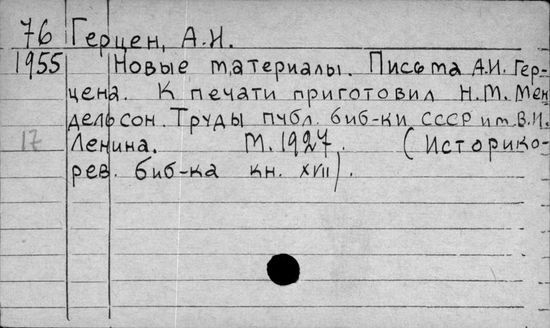 76 Герцен, А.И.
1955 Новые материалы. Письма А.И. Гер-
цена. К печати приготовил Н.М. Мен
дельсон. Труды публ. биб-ки СССР им. В.И.
17 Ленина. М. 1927. (Историко-
рев. биб-ка кн. XVII).